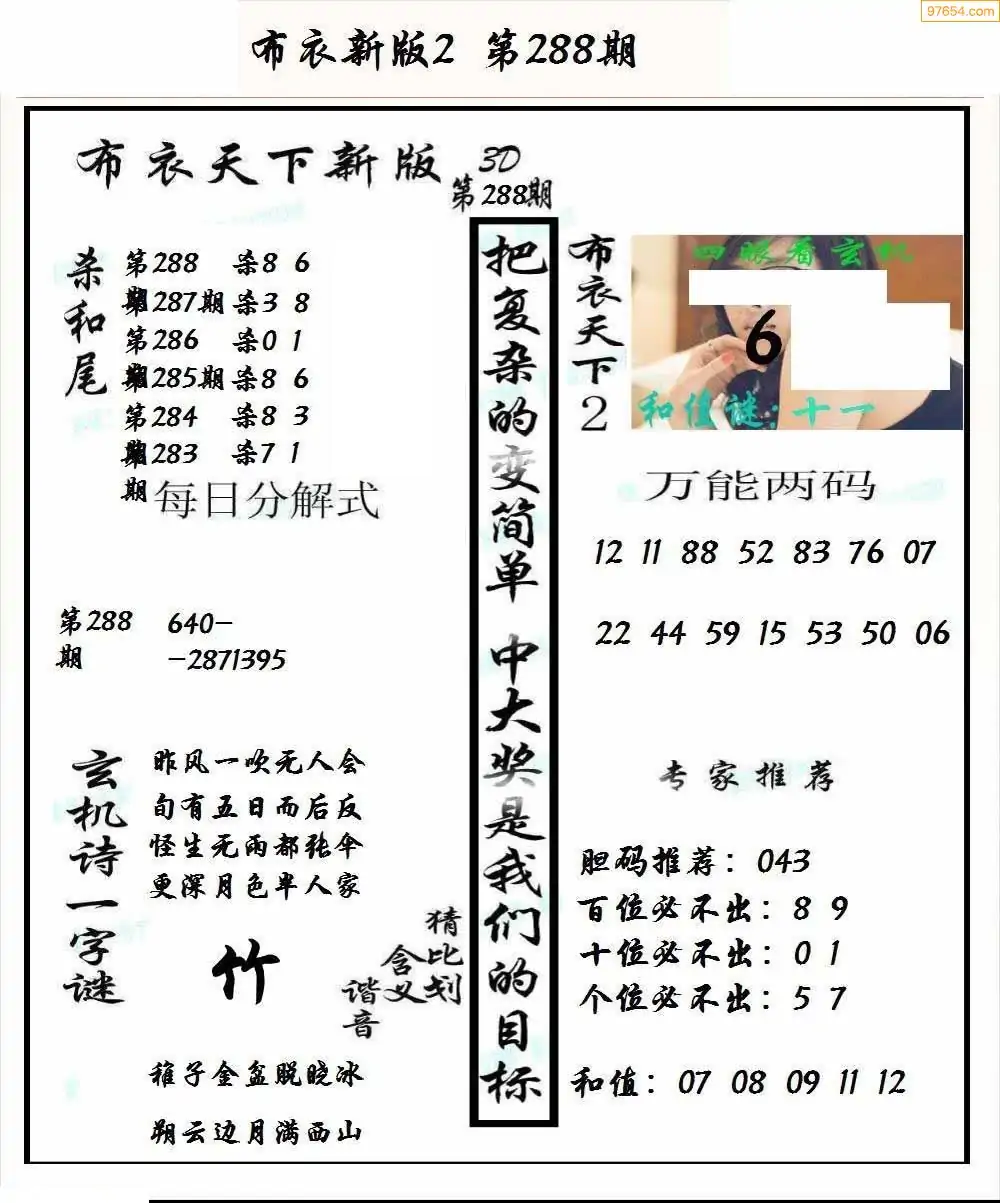 97654.com
布衣新版2 第288期
布衣天下新版
3D
第288期
杀和尾
第288期 杀8 6
第287期 杀3 8
第286期 杀0 1
第285期 杀8 6
第284期 杀8 3
第283期 杀7 1
每日分解式
第288期
640-
-2871395
玄机诗一字谜
昨风一吹无人会
旬有五日而后反
怪生无雨都张伞
更深月色半人家
竹
猜比划
含义
谐音
稚子金盆脱晓冰
朔云边月满西山
把复杂的变简单 中大奖是我们的目标
布衣天下2
四眼看玄机
6
和值谜:十一
万能两码
12 11 88 52 83 76 07
22 44 59 15 53 50 06
专家推荐
胆码推荐:043
百位必不出:8 9
十位必不出:0 1
个位必不出:5 7
和值:07 08 09 11 12